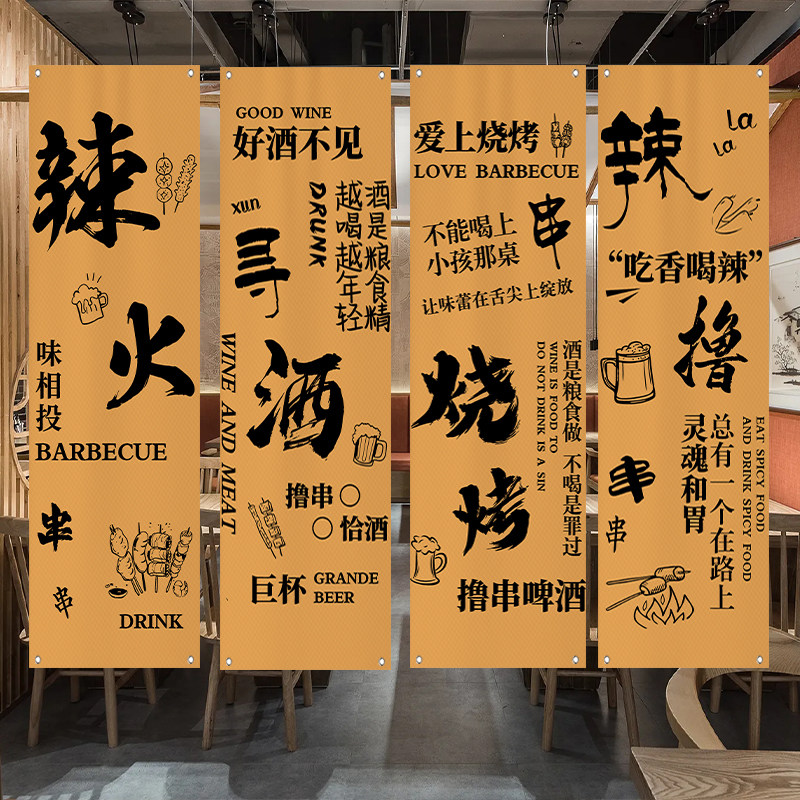 辣
火
味相投
BARBECUE
串
串
DRINK
GOOD WINE
好酒不见
xun
寻
DRUNK
酒是粮食精
越喝越年轻
WINE AND MEAT
酒
撸串〇
〇恰酒
巨杯
GRANDE
BEER
爱上烧烤
LOVE BARBECUE
不能喝上
小孩那桌
串
让味蕾在舌尖上绽放
烧烤
酒是粮食做 不喝是罪过
WINE IS FOOD TO
DO NOT DRINK IS A SIN
撸串啤酒
辣
la
la
“吃香喝辣”
撸
串
串
EAT SPICY FOOD
AND DRINK SPICY FOOD
总有一个在路上
灵魂和胃